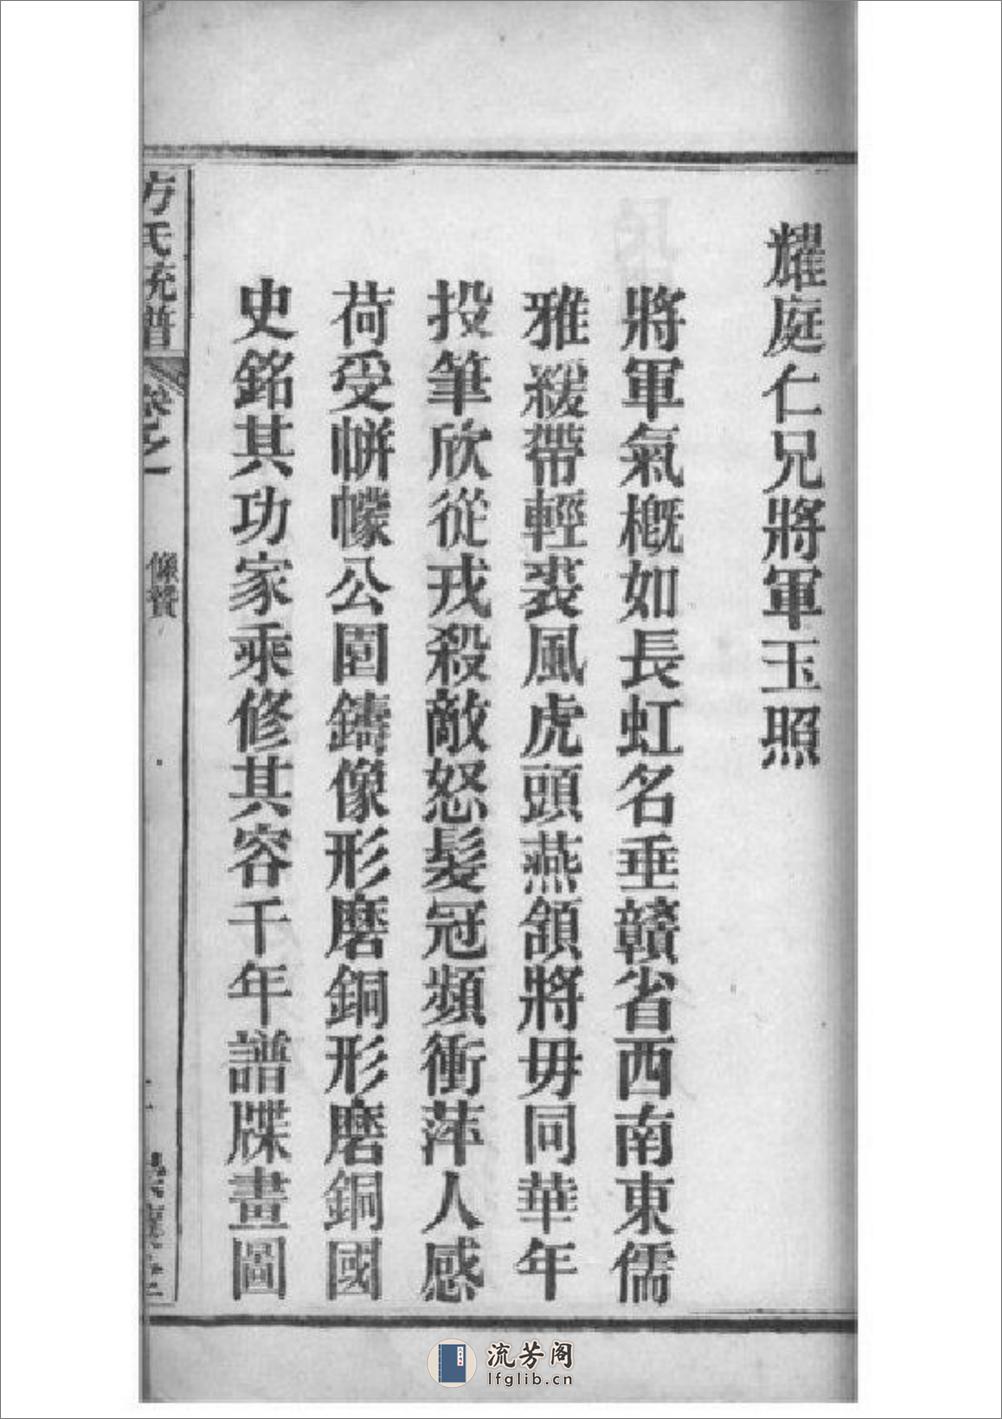 耀庭仁兄將軍玉照
將軍氣槪如長虹名垂贛省西南東儒
雅緩帶輕裘風虎頭燕頷將毋同華年
投筆欣從戎殺敵怒髮冠頻衝萍人感
荷受帡幪公園鑄像形磨銅形磨銅國
史銘其功家乘修其容千年譜牒畫圖
方氏統譜
卷之一
像贊
流芳阁
lfglib.cn